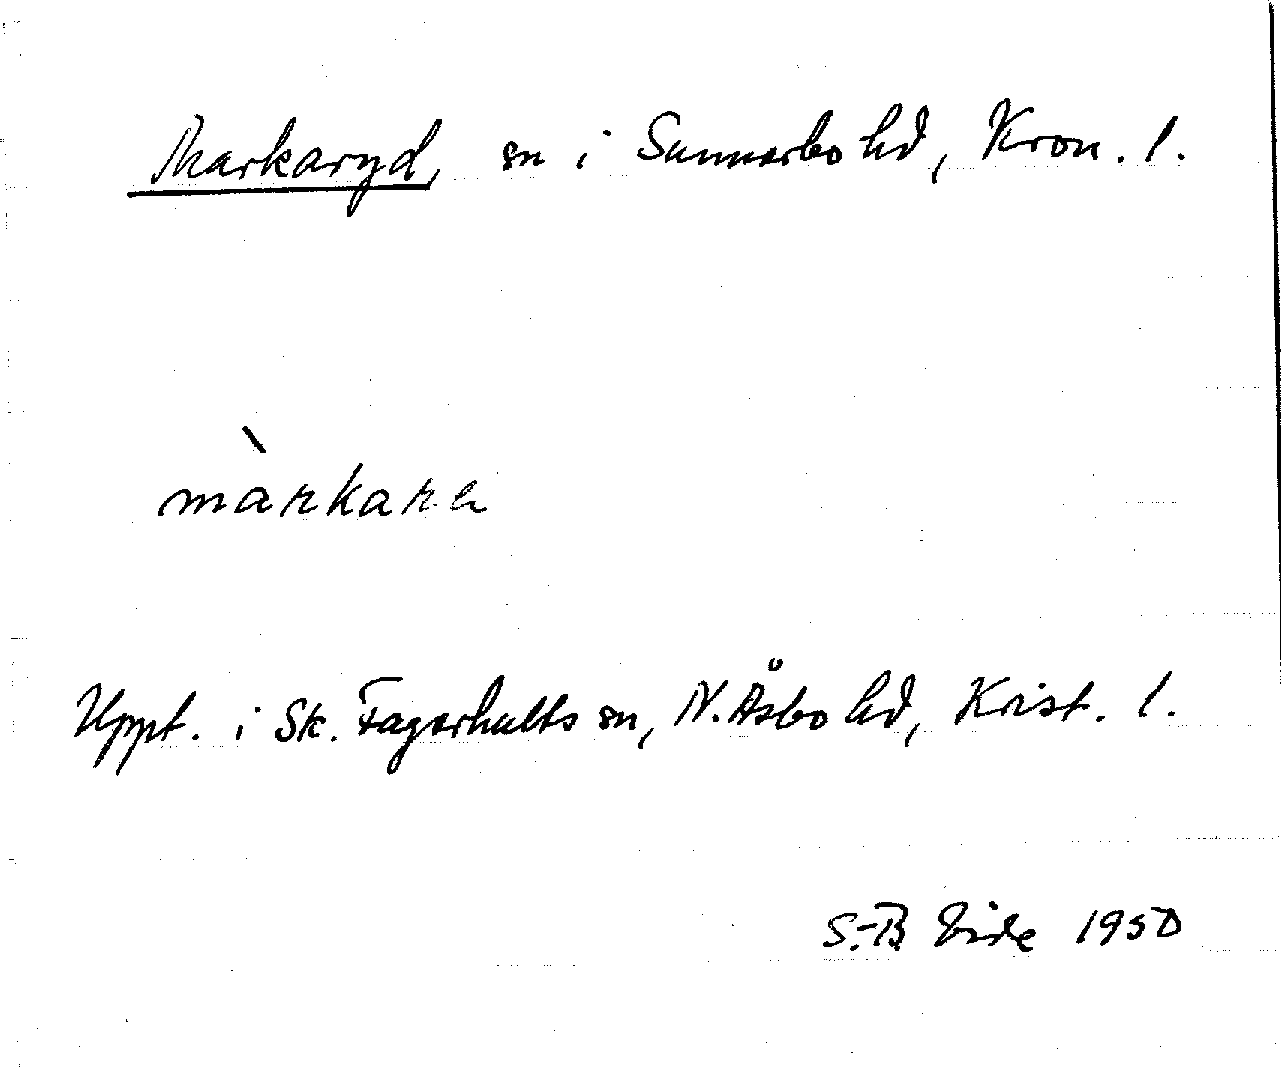 Markaryd, sn i Sunnerbo hd, Kron. l.
màrkara
Uppt. i Sk. Fagerhults sn, N. Åsbo hd, Krist. l.
S.-B. Vide 1950